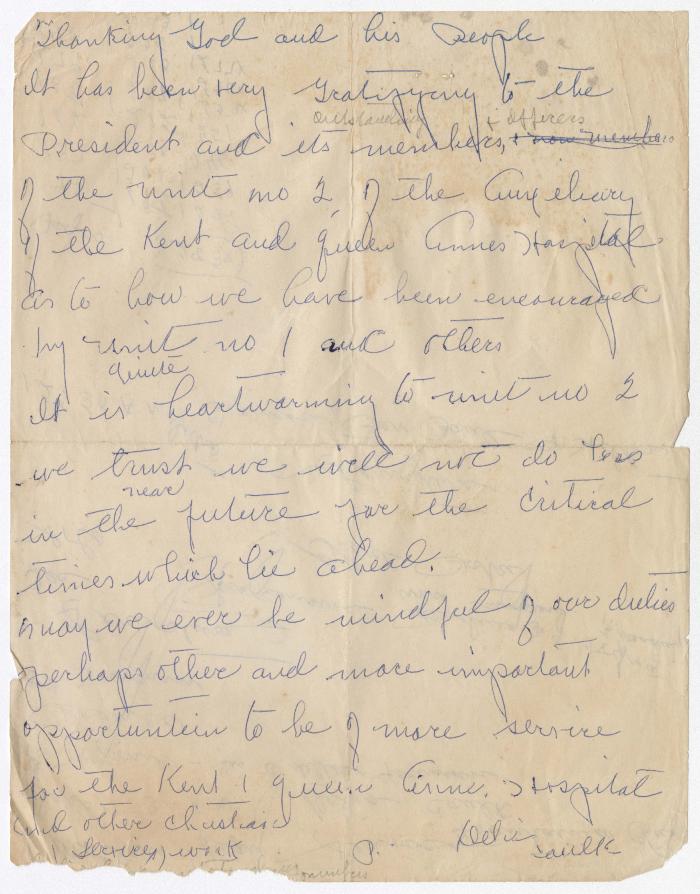 Thanking God and his people
it has been very Gratifying to the
outstanding & officers
President and its members, & now members
of the unit no 2, of the Auxeliary
of the Kent and queen Annes Hospital
as to how we have been encouraged
by unit no 1 and others
quite
it is heartwarming to unit no 2
we trust we will not do less
near
in the future for the Critical
times which lie ahead.
may we ever be mindful of our duties
perhaps other and more important
opportuntein to be of more service
for the Kent & queen Anne. Hospital
and other christian
Services, work P. Delia Faulk
members